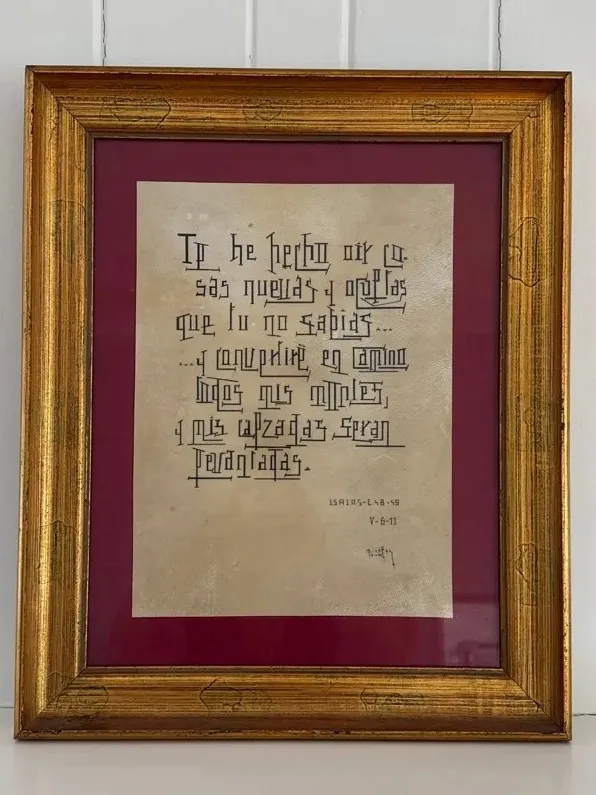 Te he hecho oir co-
sas nuevas y ocultas
que tu no sabias...
...y convertiré en camino
todos mis montes,
y mis calzadas seran
levantadas.
ISAIAS-C.48-49
V-6-11